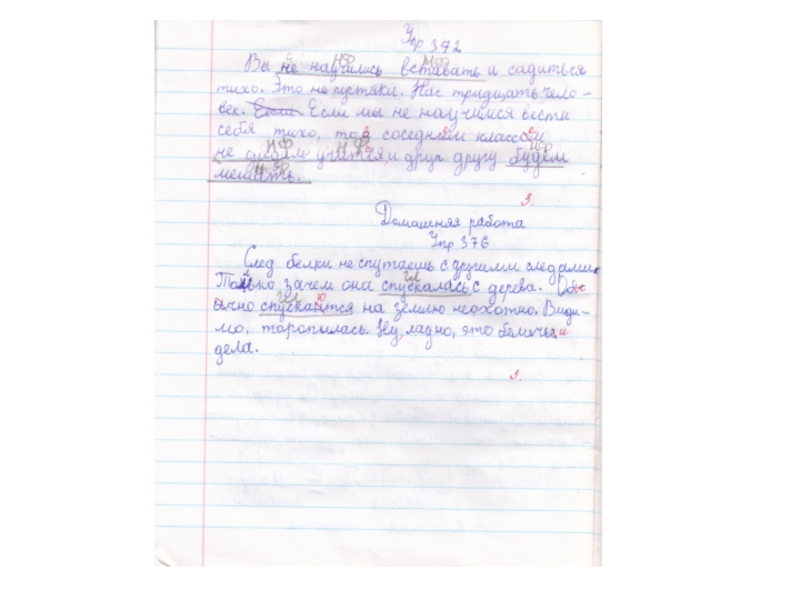 Упр 372
Вы не научились вставать и садиться
тихо. Это не пустяки. Нас тридцать чело-
век. Если мы не научимся вести
себя тихо, то соседним
не учится, и друг другу будем
мешать.
3.
Домашняя работа
Упр 376
След белки не спутаешь с другими следами.
Только зачем она спускалась с дерева. Об
ычно спускаются на землю неохотно. Види-
мо, торопилась. Ну, ладно, это беличьи
дела.
3.